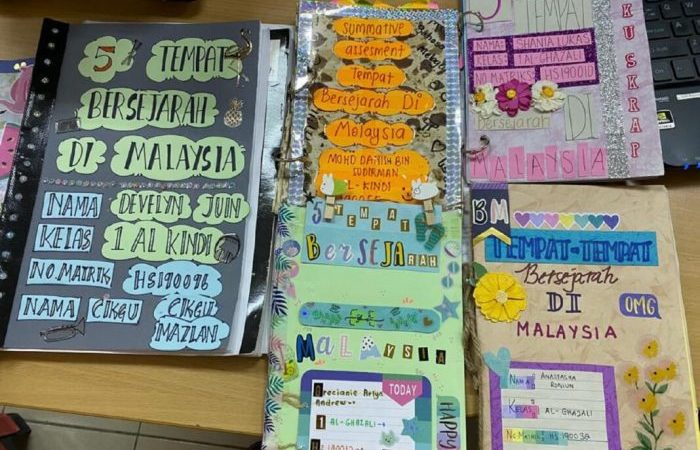 5 TEMPAT
BERSEJARAH
DI MALAYSIA
NAMA DEVELYN JUIN
KELAS 1 AL KINDI
NO.MATRIK HS190096
NAMA CIKGU CIKGU
MAZLAN
Summative
assesment
Tempat
Bersejarah Di
Malaysia
MOHD DANISH BIN
SUDIRMAN
AL-KINDI
5 TEMPAT
BERSEJARAH
MALAYSIA
TODAY
Grecianie Arlya
Andrew
1 AL-GHAZALI
HAPPY
5 TEMPAT
NAMA: SHANIA LUKAS
KELAS: 1 AL-GHAZALI
NO MATRIKS: HS190010
Bersejarah DI
MALAYSIA
KUSKRAP
BM
TEMPAT-TEMPAT
Bersejarah
DI
MALAYSIA
OMG
Nama: ANASTASHA
Kelas: AL-GHAZALI
No Matrik: HS190039